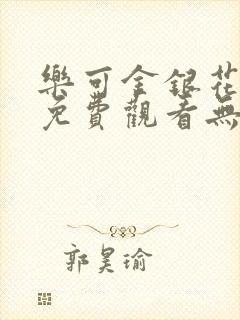 樂可金銀花
免費觀看無
郭昊瑜